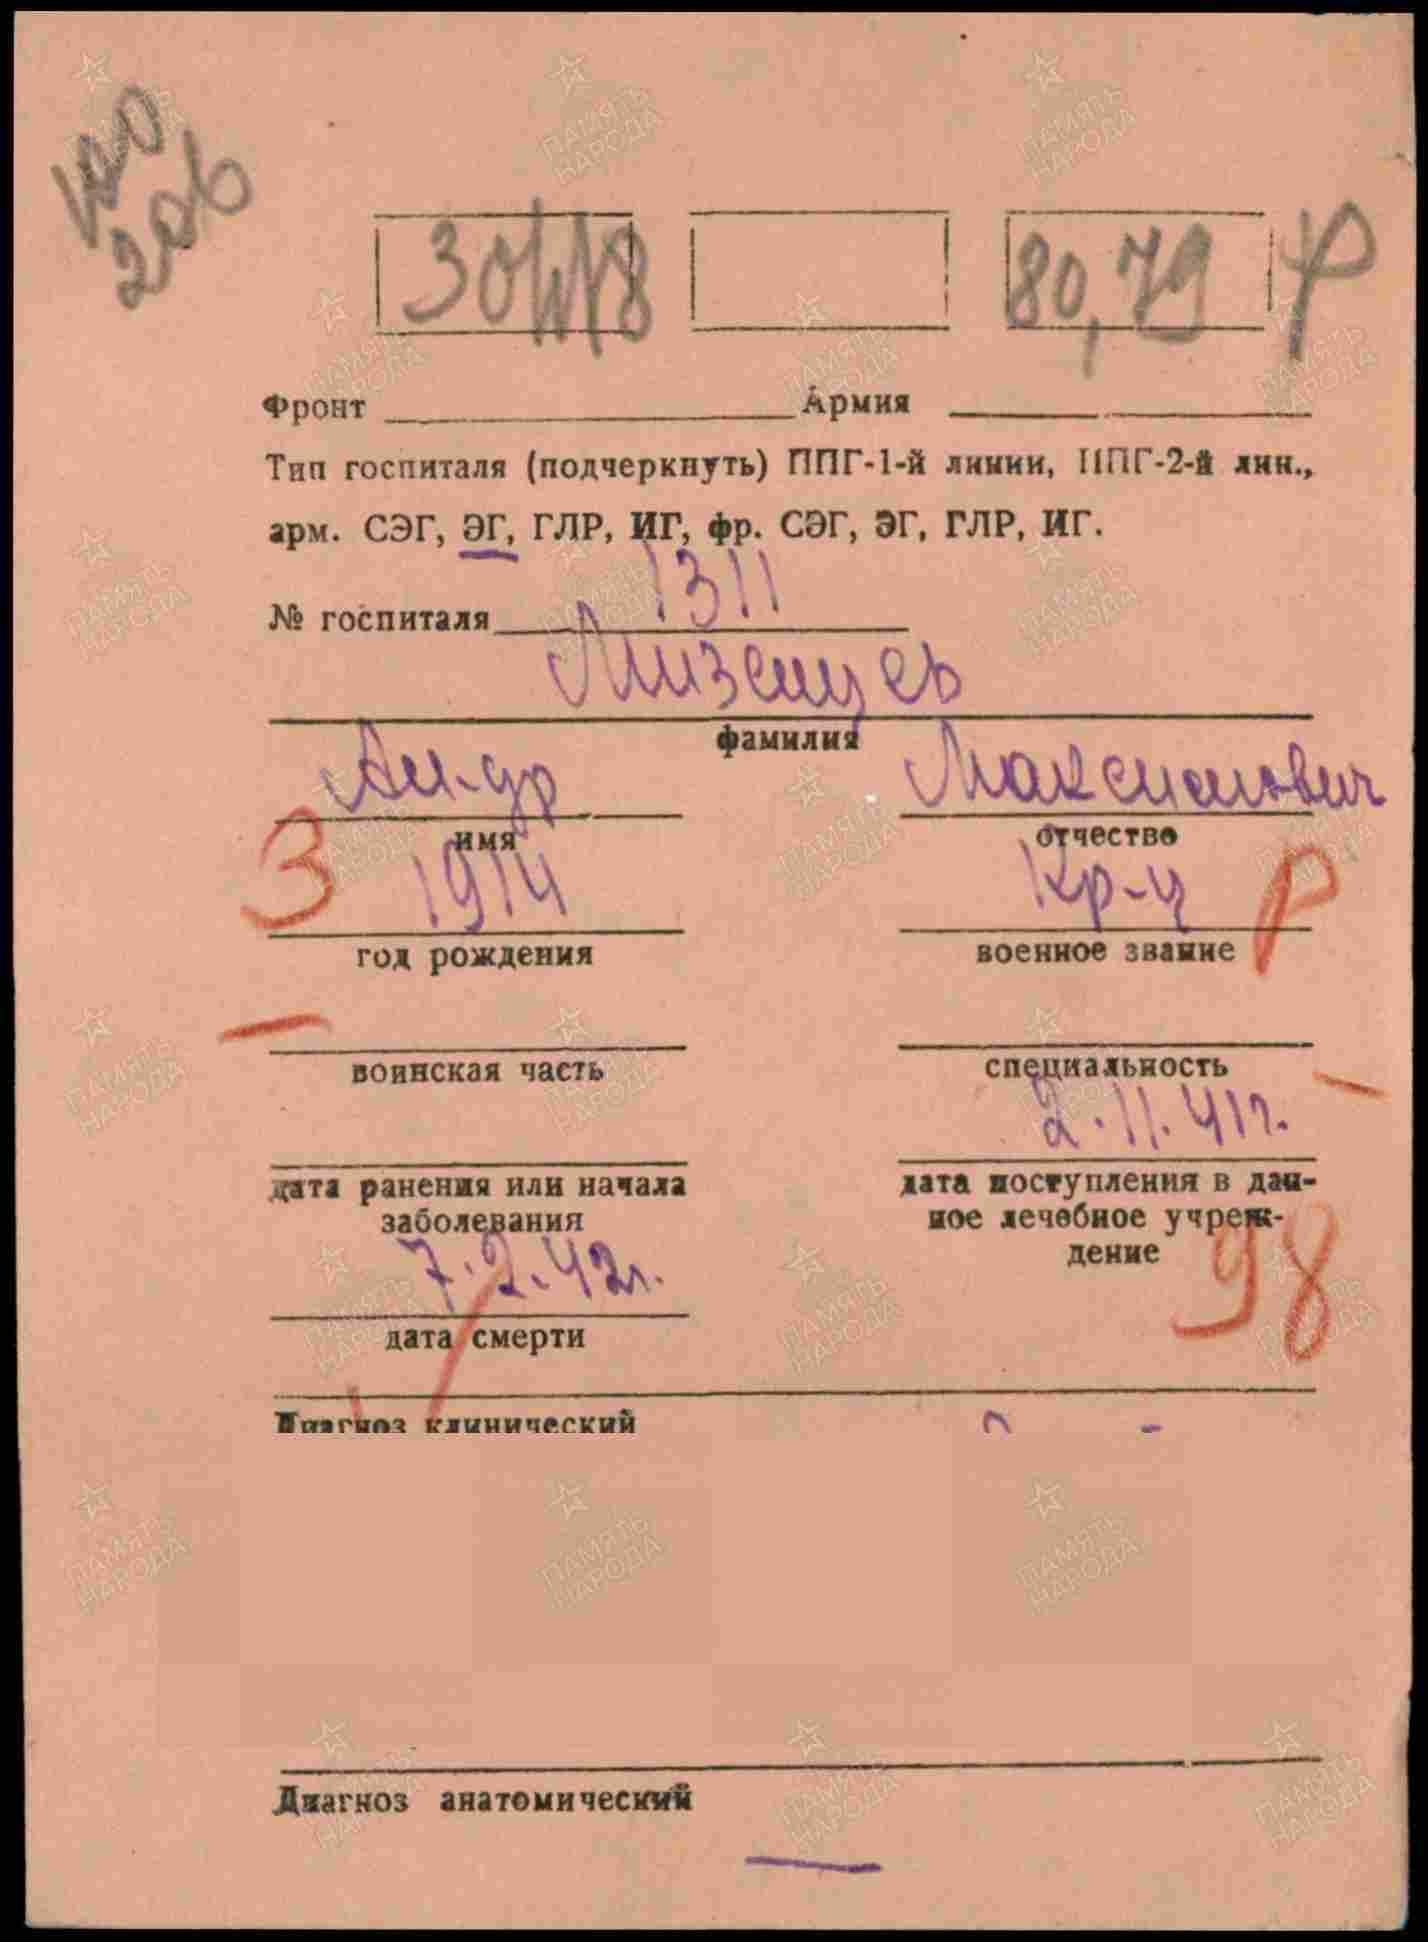 30/VI/8
80,79
Фронт Армия
Тип госпиталя (подчеркнуть) ППГ-1-й линии, ППГ-2-й лин.,
арм. СЭГ, ЭГ, ГЛР, ИГ, фр. СЭГ, ЭГ, ГЛР, ИГ.
№ госпиталя 1311
Мизенцев
фамилия
Ан-др Максимович
имя отчество
З 1914 Кр-ц Р
год рождения военное звание
воинская часть специальность
2.11.41г.
дата ранения или начала заболевания
дата поступления в данное лечебное учреждение
7.2.42г. 98
дата смерти
Диагноз клинический
Диагноз анатомический
ПАМЯТЬ НАРОДА